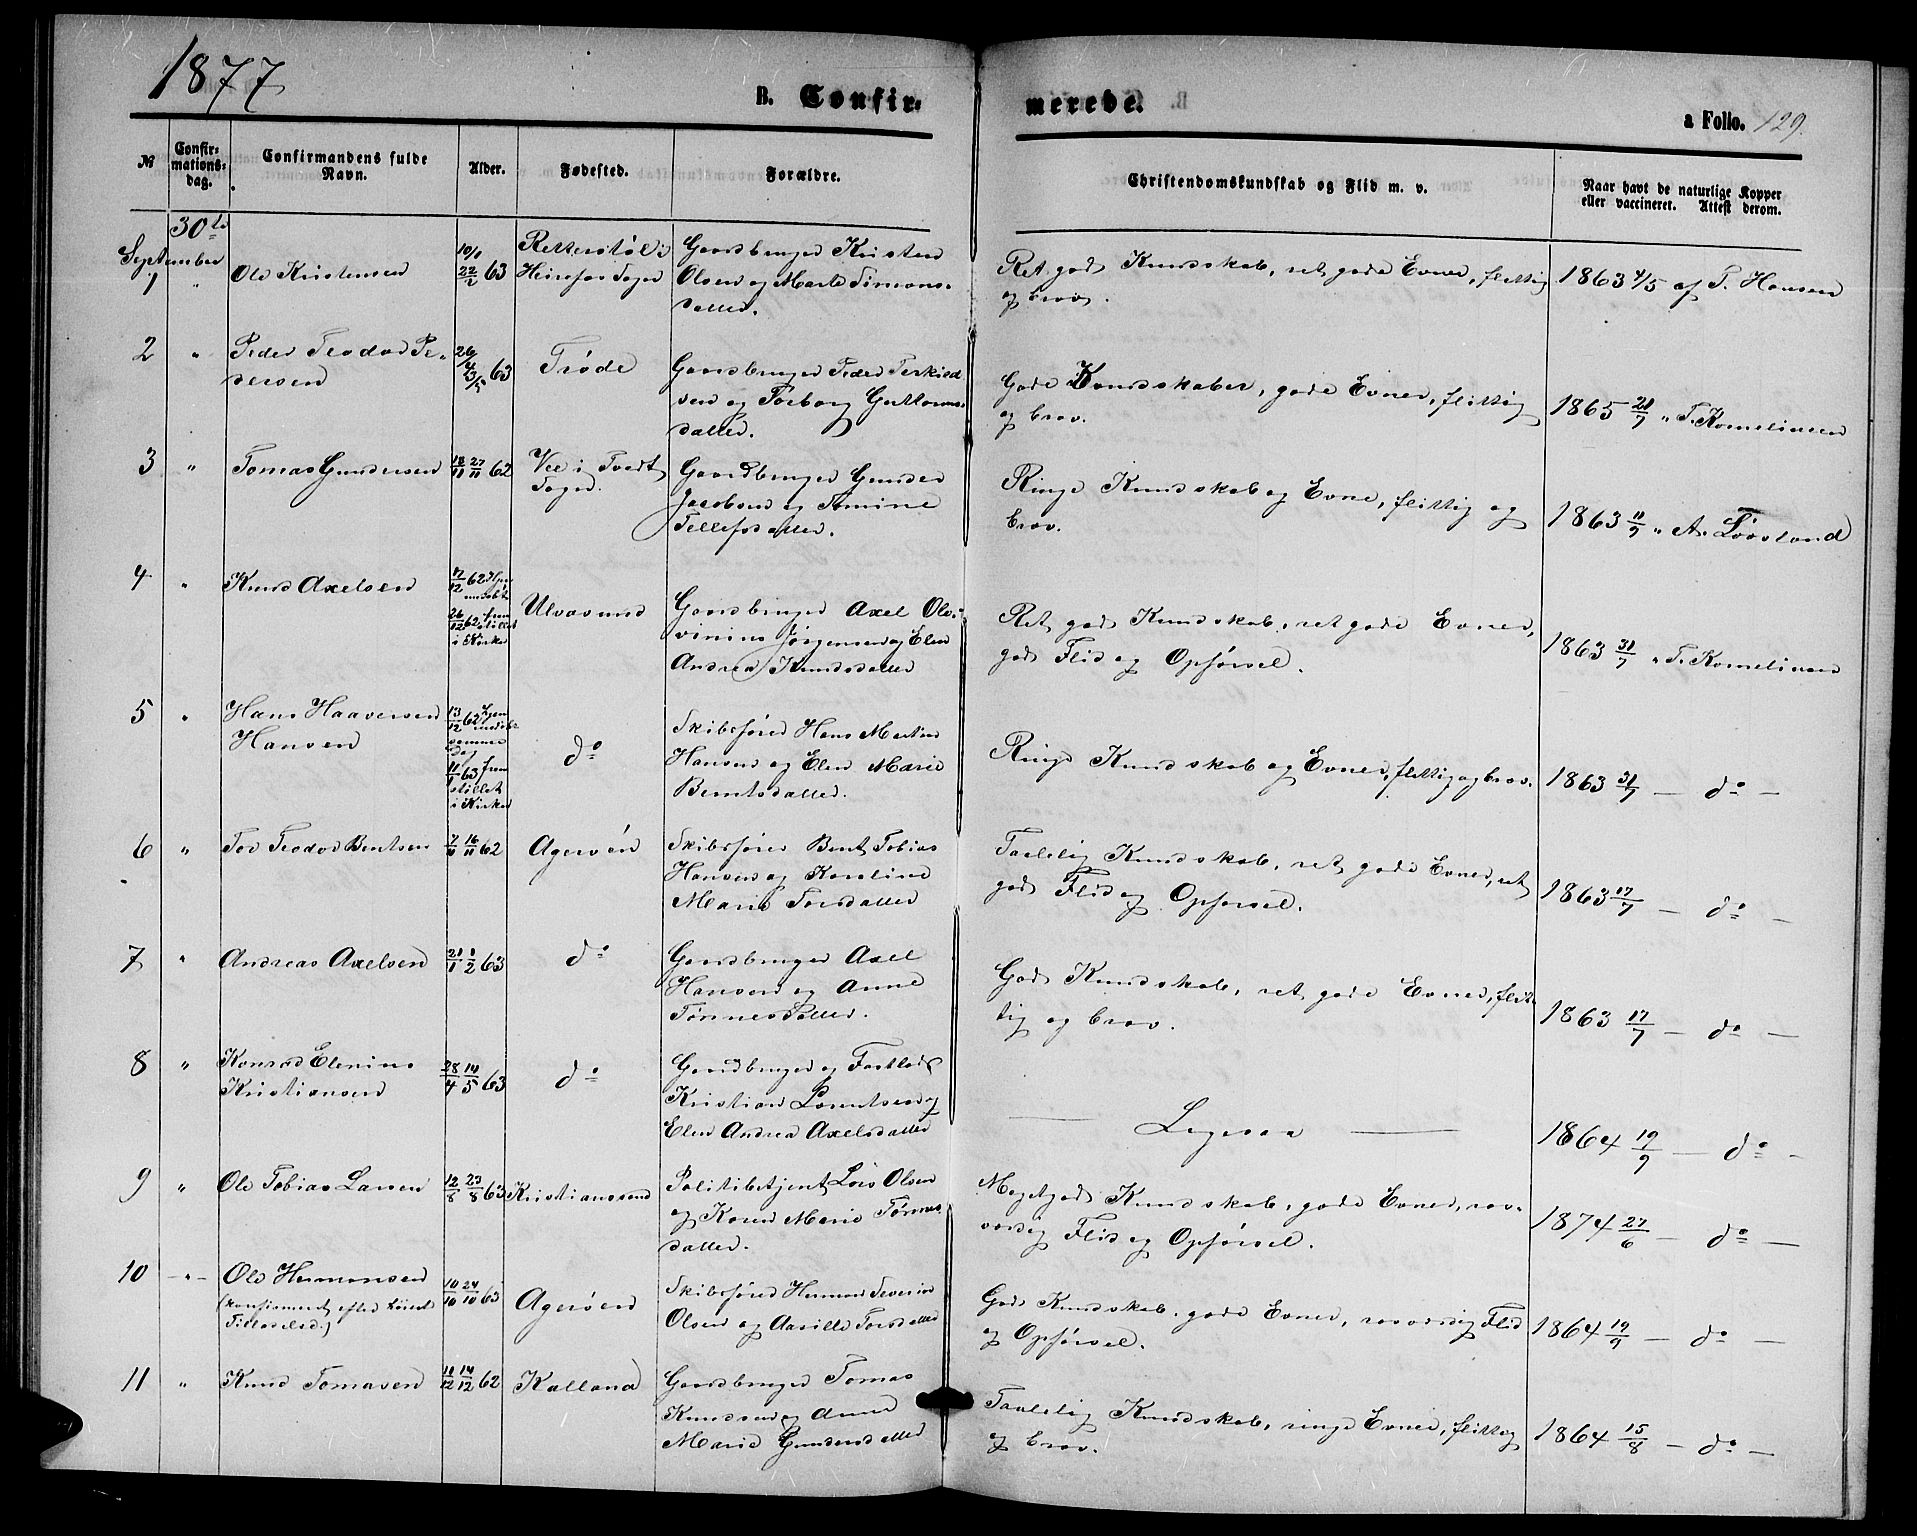 1877
B. Confir-
merede.
a Folio. 129.
№
Confir-
mations-
dag.
Confirmandens fulde
Navn.
Alder.
Fødested.
Forældre.
Christendomskundskab og Flid m. v.
Naar havt de naturlige Kopper
eller vaccineret. Attest derom.
30te
September
1 " Ole Kristensen
10/1
22/2 63
Retterstøl i
Heirefos Sogn
Gaardbruger Kristen
Olsen og Marte Simons-
datter.
Ret god Kundskab, ret gode Evner, flittig
og brav.
1863 4/5 af T. Hansen
2 " Peder Teodor Pe-
dersen
26/4
3/5 63
Trøde
Gaardbruger Peder Terkild-
sen og Torborg Guttorms-
datter.
Gode Kundskaber, gode Evner, flittig
og brav.
1865 21/7 " T. Kornelinsen
3 " Tomas Gundersen
18/11 27/11 62
Vee i Tvedt
Sogn.
Gaardbruger Gunder
Jacobsen og Amine
Tellefsdatter.
Ringe Kundskab og Evne, flittig og
brav.
1863 11/9 " A. Løvsland
4 " Knud Axelsen
17/12 62 hjem-
medøbt
26/12 62 frem-
stillet
i Kirke
Ulvøsund
Gaardbruger Axel Ols-
vinius Jørgensen og Elen
Andrea Knudsdatter
Ret god Kundskab, ret gode Evner,
god Flid og Opførsel.
1863 31/7 " T. Kornelinsen
5 " Hans Haaversen
Hansen
13/12 62 hjem-
medøbt
samme
Dag
11/1 63 frem-
stillet
i Kirke
do
Skibsfører Hans Martin
Hansen og Elen Marie
Berntsdatter.
Ringe Kundskab og Evner, flittig og brav.
1863 31/7 — do —
6 " Tor Teodor Bentsen
7/11 16/11 62
Agerøen
Skibsfører Bent Tobias
Hansen og Karoline
Marie Torsdatter
Taalelig Kundskab, ret gode Evner, ret
god Flid og Opførsel.
1863 17/7 — do —
7 " Andreas Axelsen
21/1 1/2 63
do
Gaardbruger Axel
Hansen og Anne
Tønnesdatter.
God Kundskab, ret gode Evner, flit-
tig og brav.
1863 17/7 — do —
8 " Konrad Elenius
Kristiansen
28/4 14/5 63
do
Gaardbruger og Fastlods
Kristian Lorentsen og
Elen Andrea Axelsdatter
— Ligesaa —
1864 19/9 — do -
9 " Ole Tobias Larsen
12/8 23/8 63
Kristianssand
Politibetjent Lars Olsen
og Karen Marie Tønnes-
datter.
Meget god Kundskab, gode Evner, ros-
værdig Flid og Opførsel.
1874 27/6 — do —
10 -"- Ole Hermansen
(konfirmeret efter høiest
Tilladelse)
10/10 24/10 63
Agerøen
Skibsfører Herman Severin
Olsen og Aasille Torsdatter
God Kundskab, gode Evner, rosværdig Flid
og Opførsel.
1864 19/9 — do —
11 " Knud Tomasen
11/12 14/12 62
Kalland
Gaardbruger Tomas
Knudsen og Anne
Marie Gundersdatter
Taalelig Kundskab, ringe Evner, flittig
og brav.
1864 15/8 — do —